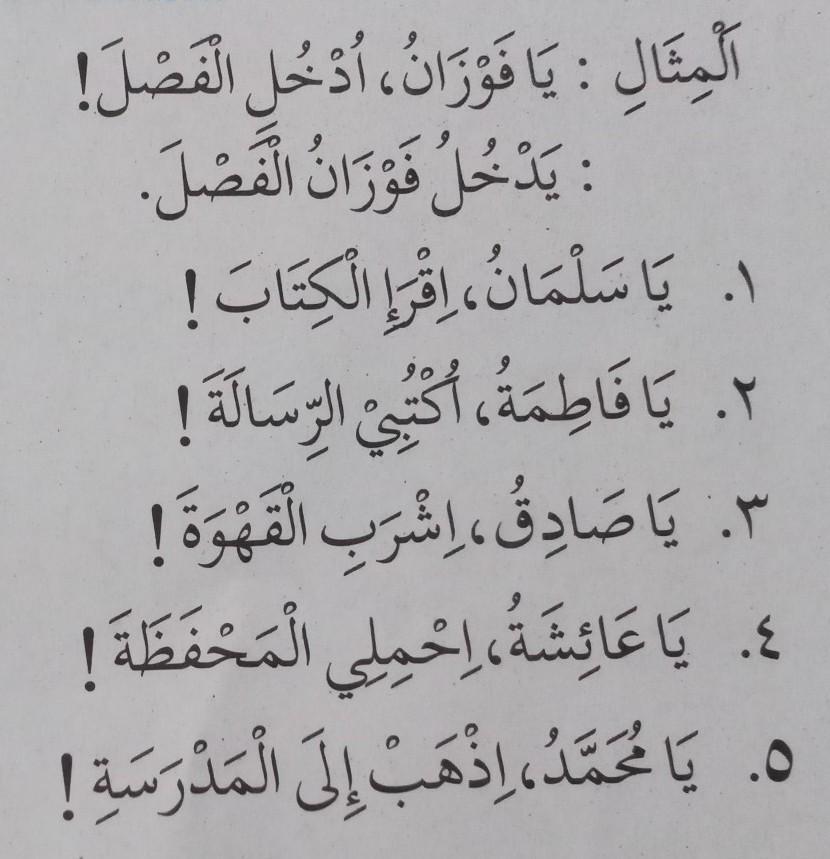 اَلْمِثَالِ : يَا فَوْزَانُ، اُدْخُلِ الْفَصْلَ!
: يَدْخُلُ فَوْزَانُ الْفَصْلَ.
١. يَا سَلْمَانُ، اِقْرَإِ الْكِتَابَ !
٢. يَا فَاطِمَةُ، اُكْتُبِيْ الرِّسَالَةَ !
٣. يَا صَادِقُ، اِشْرَبِ الْقَهْوَةَ !
٤. يَا عَائِشَةُ، اِحْمِلِي الْمَحْفَظَةَ !
٥. يَا مُحَمَّدُ، اِذْهَبْ إِلَى الْمَدْرَسَةِ !